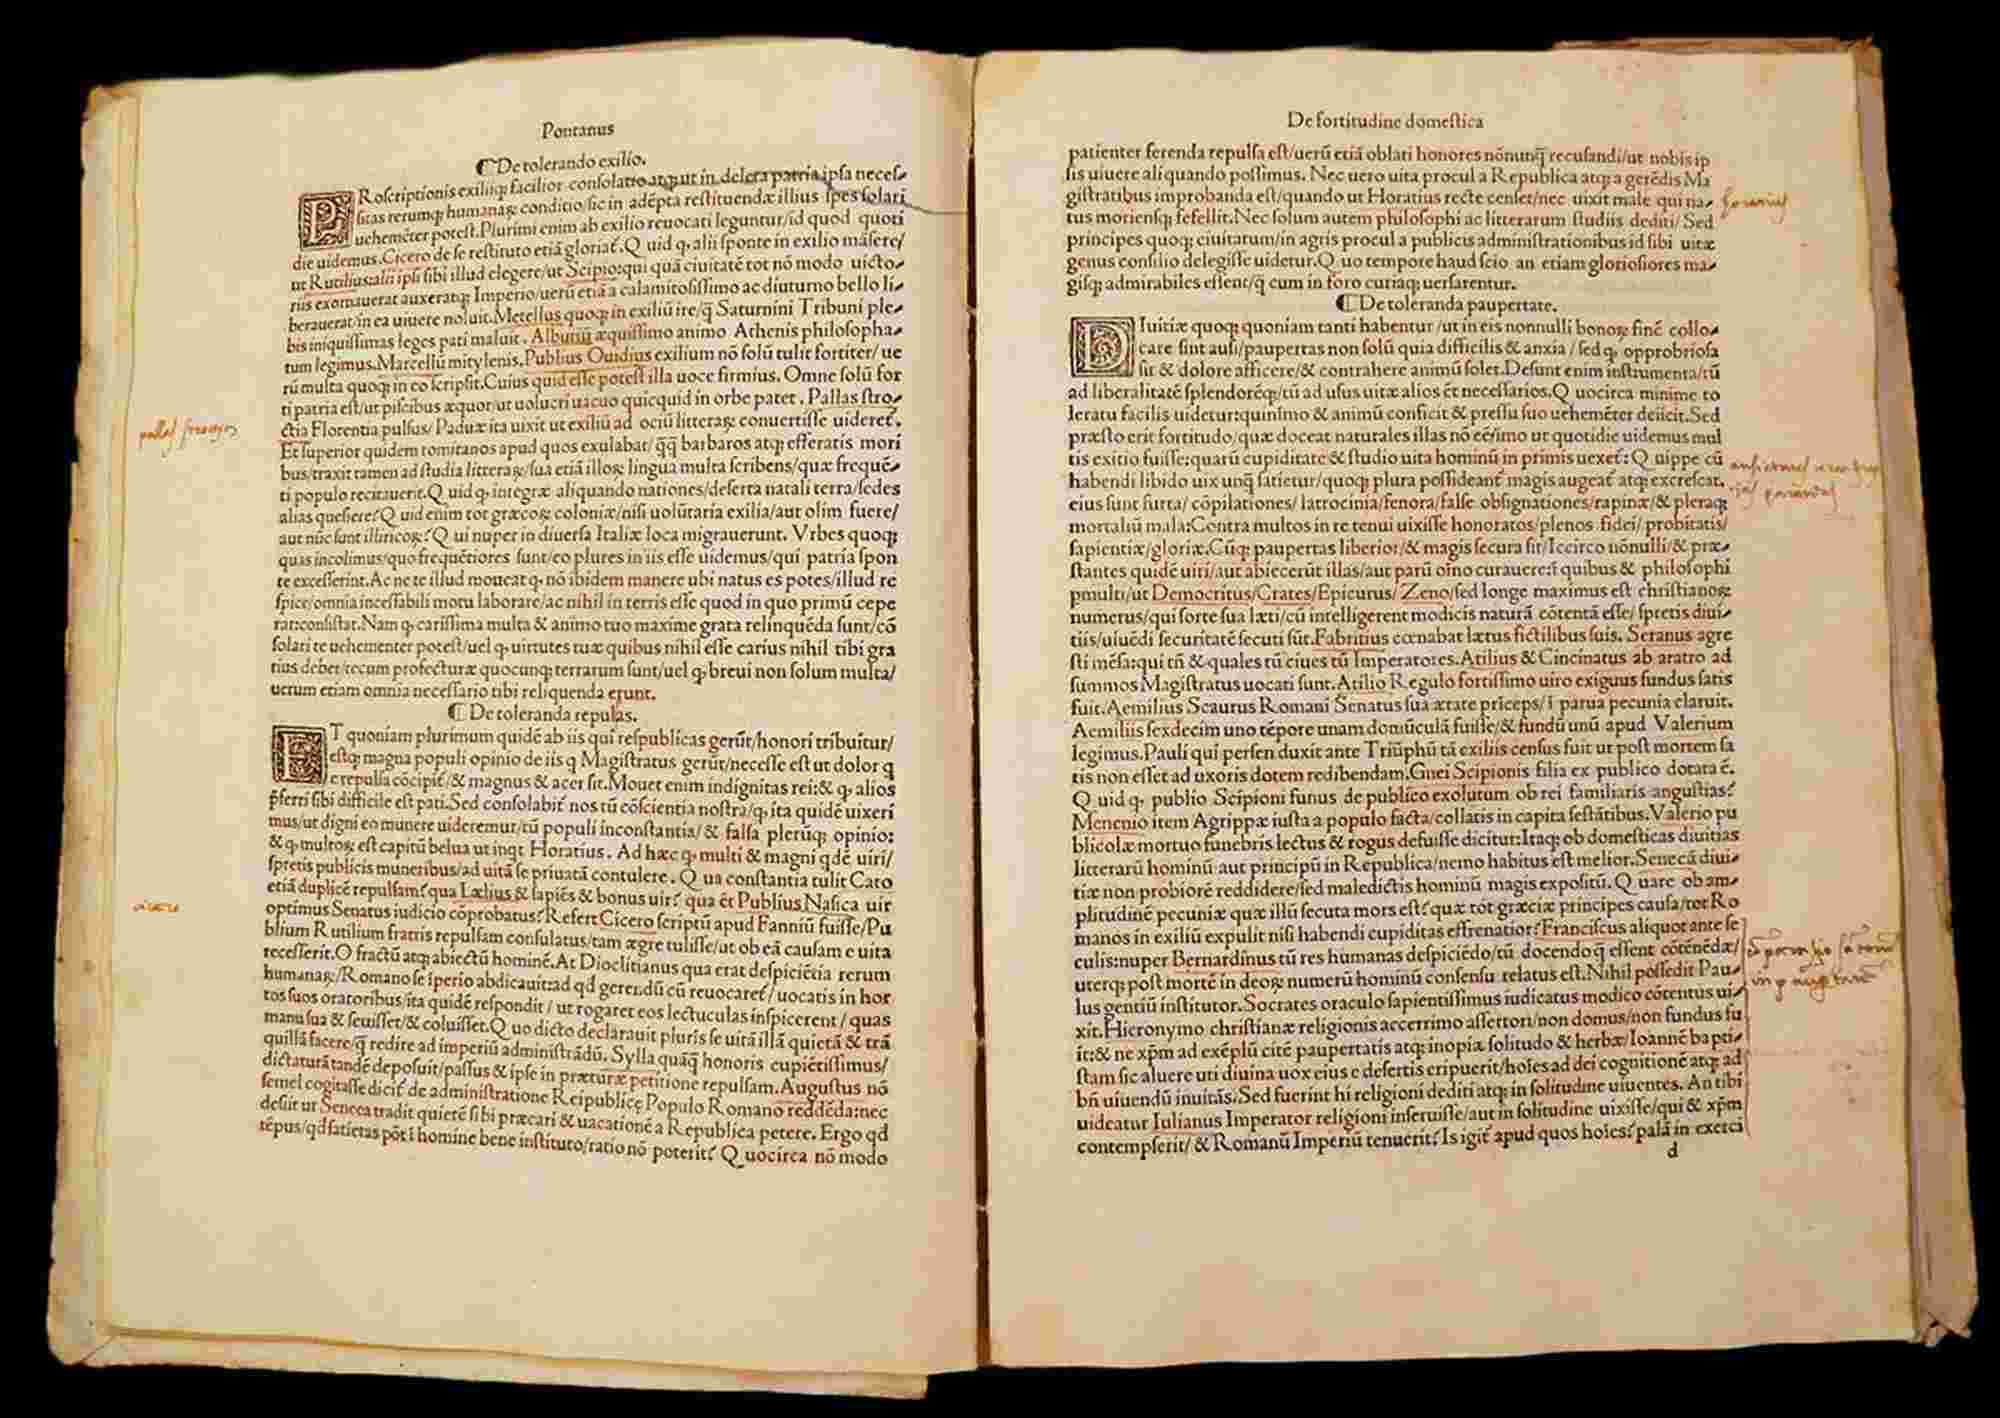 Pontanus
¶ De tolerando exilio.
PRoscriptionis exiliiq; facilior consolatio atq; ut in deleta patria ipsa neces-
sitas rerumq; humanaꝝ conditio/sic in adēpta restituendæ illius spes solari
uehemēter potest. Plurimi enim ab exilio reuocati leguntur/id quod quoti
die uidemus. Cicero de se restituto etiā gloriat᷑. Quid ꝙ alii sponte in exilio māsere/
ut Rutilius: alii ipsi sibi illud elegere/ut Scipio: qui quā ciuitatē tot nō modo uicto-
riis exornauerat auxeratq; Imperio/uerū etiā a calamitosissimo ac diuturno bello li-
berauerat/in ea uiuere noluit. Metellus quoq; in exiliū ire/q̄ Saturnini Tribuni ple-
bis iniquissimas leges pati maluit. Albutiū æquissimo animo Athenis philosopha-
tum legimus. Marcellū mitylenis. Publius Ouidius exilium nō solū tulit fortiter/ ue
rū multa quoq; in eo scripsit. Cuius quid esse potest illa uoce firmius. Omne solū for
ti patria est/ut piscibus æquor/ut uolucri uacuo quicquid in orbe patet. Pallas stro-
ctia Florentia pulsus/ Paduæ ita uixit ut exiliū ad ociū litteraꝝ conuertisse uideret᷑.
Et superior quidem tomitanos apud quos exulabat/ q̄q̄ barbaros atq; efferatis mori
bus/traxit tamen ad studia litteraꝝ/sua etiā illoꝝ lingua multa scribens/quæ frequē-
ti populo recitauerit. Quid ꝙ integræ aliquando nationes/deserta natali terra/sedes
alias quesiere? Quid enim tot græcoꝝ coloniæ/nisi uolūtaria exilia/aut olim fuere/
aut nūc sunt illiricoꝝ? Qui nuper in diuersa Italiæ loca migrauerunt. Vrbes quoq;
quas incolimus/quo frequētiores sunt/eo plures in iis esse uidemus/qui patria spon
te excesserint. Ac ne te illud moueat ꝙ nō ibidem manere ubi natus es potes/illud re
spice/omnia incessabili motu laborare/ac nihil in terris esse quod in quo primū cepe
rat: consistat. Nam ꝙ carissima multa & animo tuo maxime grata relinquēda sunt/cō
solari te uehementer potest/uel ꝙ uirtutes tuæ quibus nihil esse carius nihil tibi gra
tius debet/tecum profecturæ quocunq; terrarum sunt/uel ꝙ breui non solum multa/
uerum etiam omnia necessario tibi reliquenda erunt.
¶ De toleranda repulsa.
ET quoniam plurimum quidē ab iis qui respublicas gerūt/honori tribuitur/
estq; magna populi opinio de iis q Magistratus gerūt/necesse est ut dolor q
e repulsa cōcipit᷑/& magnus & acer sit. Mouet enim indignitas rei: & ꝙ alios
p̄ferri sibi difficile est pati. Sed consolabit᷑ nos tū cōscientia nostra/ꝙ ita quidē uixeri
mus/ut digni eo munere uideremur/tū populi inconstantia/ & falsa plerūq; opinio:
& ꝙ multoꝝ est capitū belua ut inqt Horatius. Ad hæc ꝙ multi & magni qdē uiri/
spretis publicis muneribus/ad uitā se priuatā contulere. Qua constantia tulit Cato
etiā duplicē repulsam? qua Lælius & sapiēs & bonus uir? qua ēt Publius Nasica uir
optimus Senatus iudicio cōprobatus? Refert Cicero scriptū apud Fanniū fuisse/Pu
blium Rutilium fratris repulsam consulatus/tam ægre tulisse/ut ob eā causam e uita
recesserit. O fractū atq; abiectū hominē. At Dioclitianus qua erat despiciētia rerum
humanaꝝ/Romano se iperio abdicauit: ad qd gerendū cū reuocaret᷑/ uocatis in hor
tos suos oratoribus/ita quidē respondit/ ut rogaret eos lectuculas inspicerent/ quas
manu sua & seuisset/& coluisset. Quo dicto declarauit pluris se uitā illā quietā & trā
quillā facere/q̄ redire ad imperiū administrādū. Sylla quāq̄ honoris cupiētissimus/
dictaturā tandē deposuit/passus & ipse in præturæ petitione repulsam. Augustus nō
semel cogitasse dicit᷑ de administratione Reipublicę Populo Romano reddēda: nec
desiit ut Seneca tradit quietē sibi præcari & uacationē a Republica petere. Ergo qd
tēpus/qd satietas pōt ī homine bene instituto/ratio nō poterit? Quocirca nō modo
pallas strozius
cicero
De fortitudine domestica
patienter ferenda repulsa est/uerū etiā oblati honores nōnunq̄ recusandi/ut nobis ip
sis uiuere aliquando possimus. Nec uero uita procul a Republica atq; a gerēdis Ma
gistratibus improbanda est/quando ut Horatius recte censet/nec uixit male qui na-
tus moriensq; fefellit. Nec solum autem philosophi ac litterarum studiis dediti/ Sed
principes quoq; ciuitatum/in agris procul a publicis administrationibus id sibi uitæ
genus consilio delegisse uidetur. Quo tempore haud scio an etiam gloriosiores ma-
gisq; admirabiles essent/q̄ cum in foro curiaq; uersarentur.
¶ De toleranda paupertate.
DIuitiæ quoq; quoniam tanti habentur/ut in eis nonnulli bonoꝝ finē collo-
care sint ausi/paupertas non solū quia difficilis & anxia/ sed ꝙ opprobriosa
sit & dolore afficere/& contrahere animū solet. Desunt enim instrumenta/tū
ad liberalitatē splendorēq;/tū ad usus uitæ alios ēt necessarios. Quocirca minime to
leratu facilis uidetur: quinimo & animū conficit & pressu suo uehemēter deiicit. Sed
præsto erit fortitudo/quæ doceat naturales illas nō eē: imo ut quotidie uidemus mul
tis exitio fuisse: quarū cupiditate & studio uita hominū in primis uexet᷑: Quippe cū
habendi libido uix unq̄ satietur/quoq; plura possideant᷑ magis augeat᷑ atq; excrescat.
eius sunt furta/ cōpilationes/ latrocinia/fenora/false obsignationes/rapinæ/& pleraq;
mortaliū mala: Contra multos in re tenui uixisse honoratos/plenos fidei/ probitatis/
sapientiæ/gloriæ. Cūq; paupertas liberior/& magis secura sit/Iccirco nōnulli/& præ-
stantes quidē uiri/aut abiecerūt illas/aut parū oīno curauere: ī quibus & philosophi
pmulti/ut Democritus/Crates/Epicurus/ Zeno/sed longe maximus est christianoꝝ
numerus/qui sorte sua læti/cū intelligerent modicis naturā cōtentā esse/ spretis diui
tiis/uiuēdi securitatē secuti sūt. Fabritius cœnabat lætus fictilibus suis. Seranus agre
sti mēsa: qui tn̄ & quales tū ciues tū Imperatores. Atilius & Cincinatus ab aratro ad
summos Magistratus uocati sunt. Atilio Regulo fortissimo uiro exiguus fundus satis
fuit. Aemilius Scaurus Romani Senatus sua ætate prīceps/ ī parua pecunia claruit.
Aemilii sexdecim uno tēpore unam domūculā fuisse/& fundū unū apud Valerium
legimus. Pauli qui persen duxit ante Triūphū tā exiliis census fuit ut post mortem sa
tis non esset ad uxoris dotem redibendam. Gnei Scipionis filia ex publico dotata ē.
Quid ꝙ publio Scipioni funus de publico exolutum ob rei familiaris angustias?
Menenio item Agrippæ iusta a populo facta/collatis in capita sestātibus. Valerio pu
blicolæ mortuo funebris lectus & rogus defuisse dicitur: Itaq; ob domesticas diuitias
litterarū hominū aut principū in Republica/nemo habitus est melior. Senecā diui-
tiæ non probiorē reddidere/sed maledictis hominū magis expositū. Quare ob am-
plitudinē pecuniæ quæ illū secuta mors est? quæ tot græciæ principes causa/tot Ro
manos in exiliū expulit nisi habendi cupiditas effrenatior? Franciscus aliquot ante se
culis: nuper Bernardinus tū res humanas despiciēdo/tū docendo q̄ essent cōtēnēdæ/
uterq; post mortē in deoꝝ numerū hominū consensu relatus est. Nihil possedit Pau-
lus gentiū institutor. Socrates oraculo sapientissimus iudicatus modico cōtentus ui-
xit. Hieronymo christianæ religionis accerrimo assertori/non domus/non fundus fu
it: & ne xp̄m ad exēplū citē paupertatis atq; inopiæ solitudo & herbæ/ Ioannē bapti-
stam sic aluere uti diuina uox eius e desertis eripuerit/hoīes ad dei cognitionē atq; ad
bn̄ uiuendū inuitās. Sed fuerint hi religioni dediti atq; in solitudine uiuentes. An tibi
uideatur Iulianus Imperator religioni inseruisse/aut in solitudine uixisse/qui & xp̄m
contempserit/ & Romanū Imperiū tenuerit? Is igit᷑ apud quos hoīes? palā in exerci
d